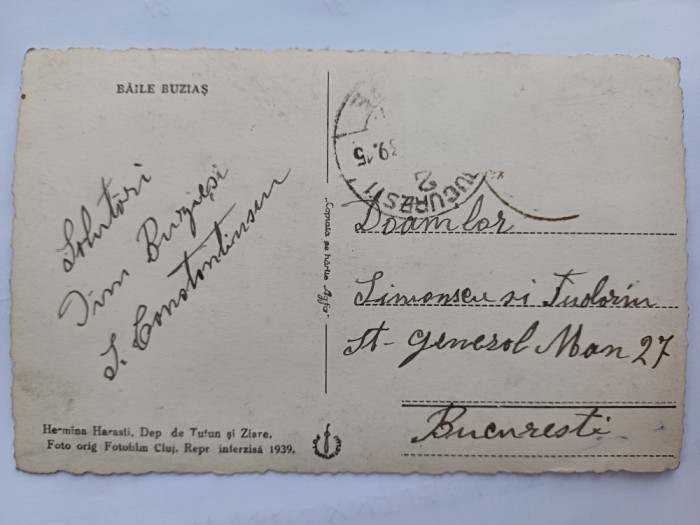 BĂILE BUZIAȘ
Salutări
Din Buzieși
S. Constantinescu
"Copiata pe hârtie "Agfa"
39.15
BUCUREȘTI 2
Doamlor
Simonscu si Tudorin
st- General Man 27
Bucuresti
Hermina Harasti, Dep de Tutun și Ziare.
Foto orig Fotofilm Cluj. Repr interzisă 1939.